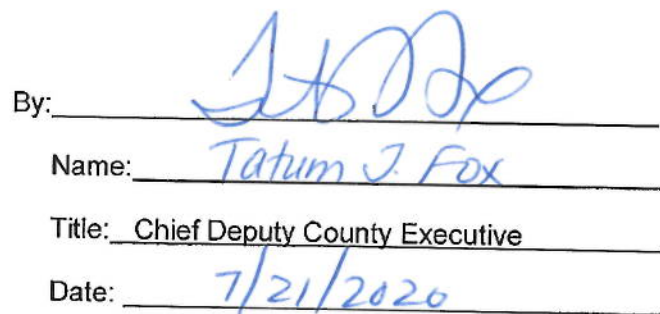 By:
Name: Tatum J. Fox
Title: Chief Deputy County Executive
Date: 7/21/2020